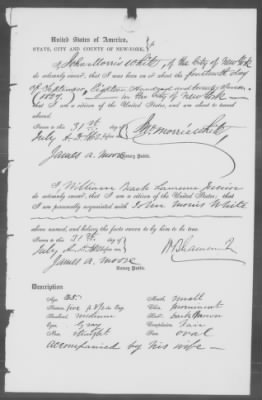 United States of America.
STATE, CITY AND COUNTY OF NEW-YORK,
I John Morris White, of the City of New York
do solemnly swear, that I was born on or about the fourteenth day
of September Eighteen Hundred and twenty seven
(1827) in the City of New York
that I am a citizen of the United States, and am about to travel
abroad.
Sworn to this 31st day of
July A.D. before me
Jno Morris White
James A. Moore
Notary Public.
I, William
do solemnly swear, that I am a citizen of the United States, that
I am personally acquainted with John Morris White
above named, and believe the facts sworn to by him to be true.
Sworn to this 31st day of
July before me
James A. Moore
Notary Public.
Description
Age
Stature Five
Forehead medium
Eyes Gray
Nose straight
Mouth small
Chin prominent
Hair Dark Brown
Complexion Fair
Face oval
accompanied by his wife —